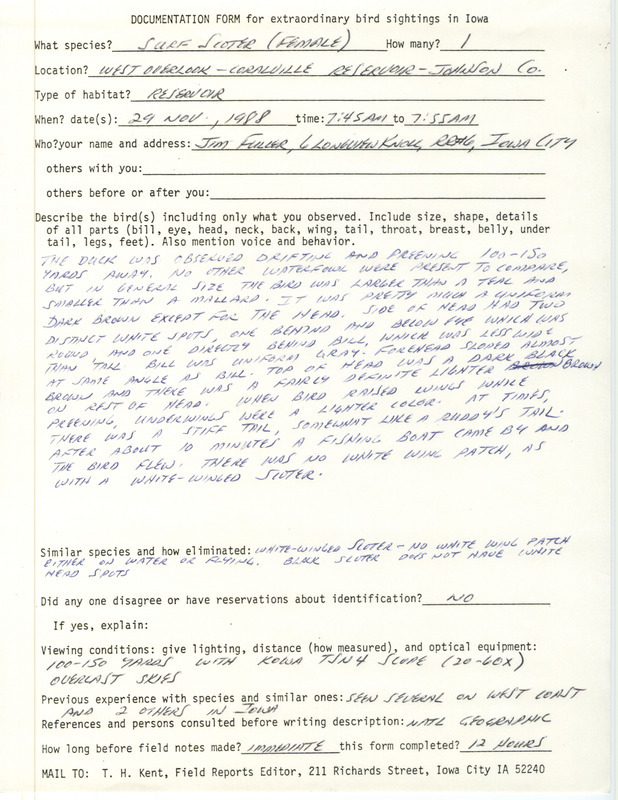 DOCUMENTATION FORM for extraordinary bird sightings in Iowa
What species? SURF SCOTER (FEMALE) How many? 1
Location? WEST OVERLOOK - CORALVILLE RESERVOIR - JOHNSON CO.
Type of habitat? RESERVOIR
When? date(s): 29 NOV., 1988 time: 7:45AM to 7:55AM
Who? your name and address: JIM FULLER, 6 LONGVIEW KNOLL, RR#6, IOWA CITY
others with you:
others before or after you:
Describe the bird(s) including only what you observed. Include size, shape, details
of all parts (bill, eye, head, neck, back, wing, tail, throat, breast, belly, under
tail, legs, feet). Also mention voice and behavior.
THE DUCK WAS OBSERVED DRIFTING AND PREENING 100-150
YARDS AWAY. NO OTHER WATERFOWL WERE PRESENT TO COMPARE,
BUT IN GENERAL SIZE THE BIRD WAS LARGER THAN A TEAL AND
SMALLER THAN A MALLARD. IT WAS PRETTY MUCH A UNIFORM
DARK BROWN EXCEPT FOR THE HEAD. SIDE OF HEAD HAD TWO
DISTINCT WHITE SPOTS, ONE BEHIND AND BELOW EYE WHICH WAS
ROUND AND ONE DIRECTLY BEHIND BILL, WHICH WAS LESS WIDE
THAN TALL. BILL WAS UNIFORM GRAY. FOREHEAD SLOPED ALMOST
AT SAME ANGLE AS BILL. TOP OF HEAD WAS A DARK BLACK
BROWN AND THERE WAS A FAIRLY DEFINITE LIGHTER BROWN BROWN
ON REST OF HEAD. WHEN BIRD RAISED WINGS WHILE
PREENING, UNDERWINGS WERE A LIGHTER COLOR. AT TIMES,
THERE WAS A STIFF TAIL, SOMEWHAT LIKE A RUDDY'S TAIL.
AFTER ABOUT 10 MINUTES A FISHING BOAT CAME BY AND
THE BIRD FLEW. THERE WAS NO WHITE WING PATCH, AS
WITH A WHITE-WINGED SCOTER.
Similar species and how eliminated: WHITE-WINGED SCOTER - NO WHITE WING PATCH
EITHER ON WATER OR FLYING. BLACK SCOTER DOES NOT HAVE WHITE
HEAD SPOTS
Did any one disagree or have reservations about identification? NO
If yes, explain:
Viewing conditions: give lighting, distance (how measured), and optical equipment:
100-150 YARDS WITH KOWA TSN4 SCOPE (20-60X)
OVERCAST SKIES
Previous experience with species and similar ones: SEEN SEVERAL ON WEST COAST
AND 2 OTHERS IN IOWA
References and persons consulted before writing description: NATL GEOGRAPHIC
How long before field notes made? IMMEDIATE this form completed? 12 HOURS
MAIL TO: T. H. Kent, Field Reports Editor, 211 Richards Street, Iowa City IA 52240